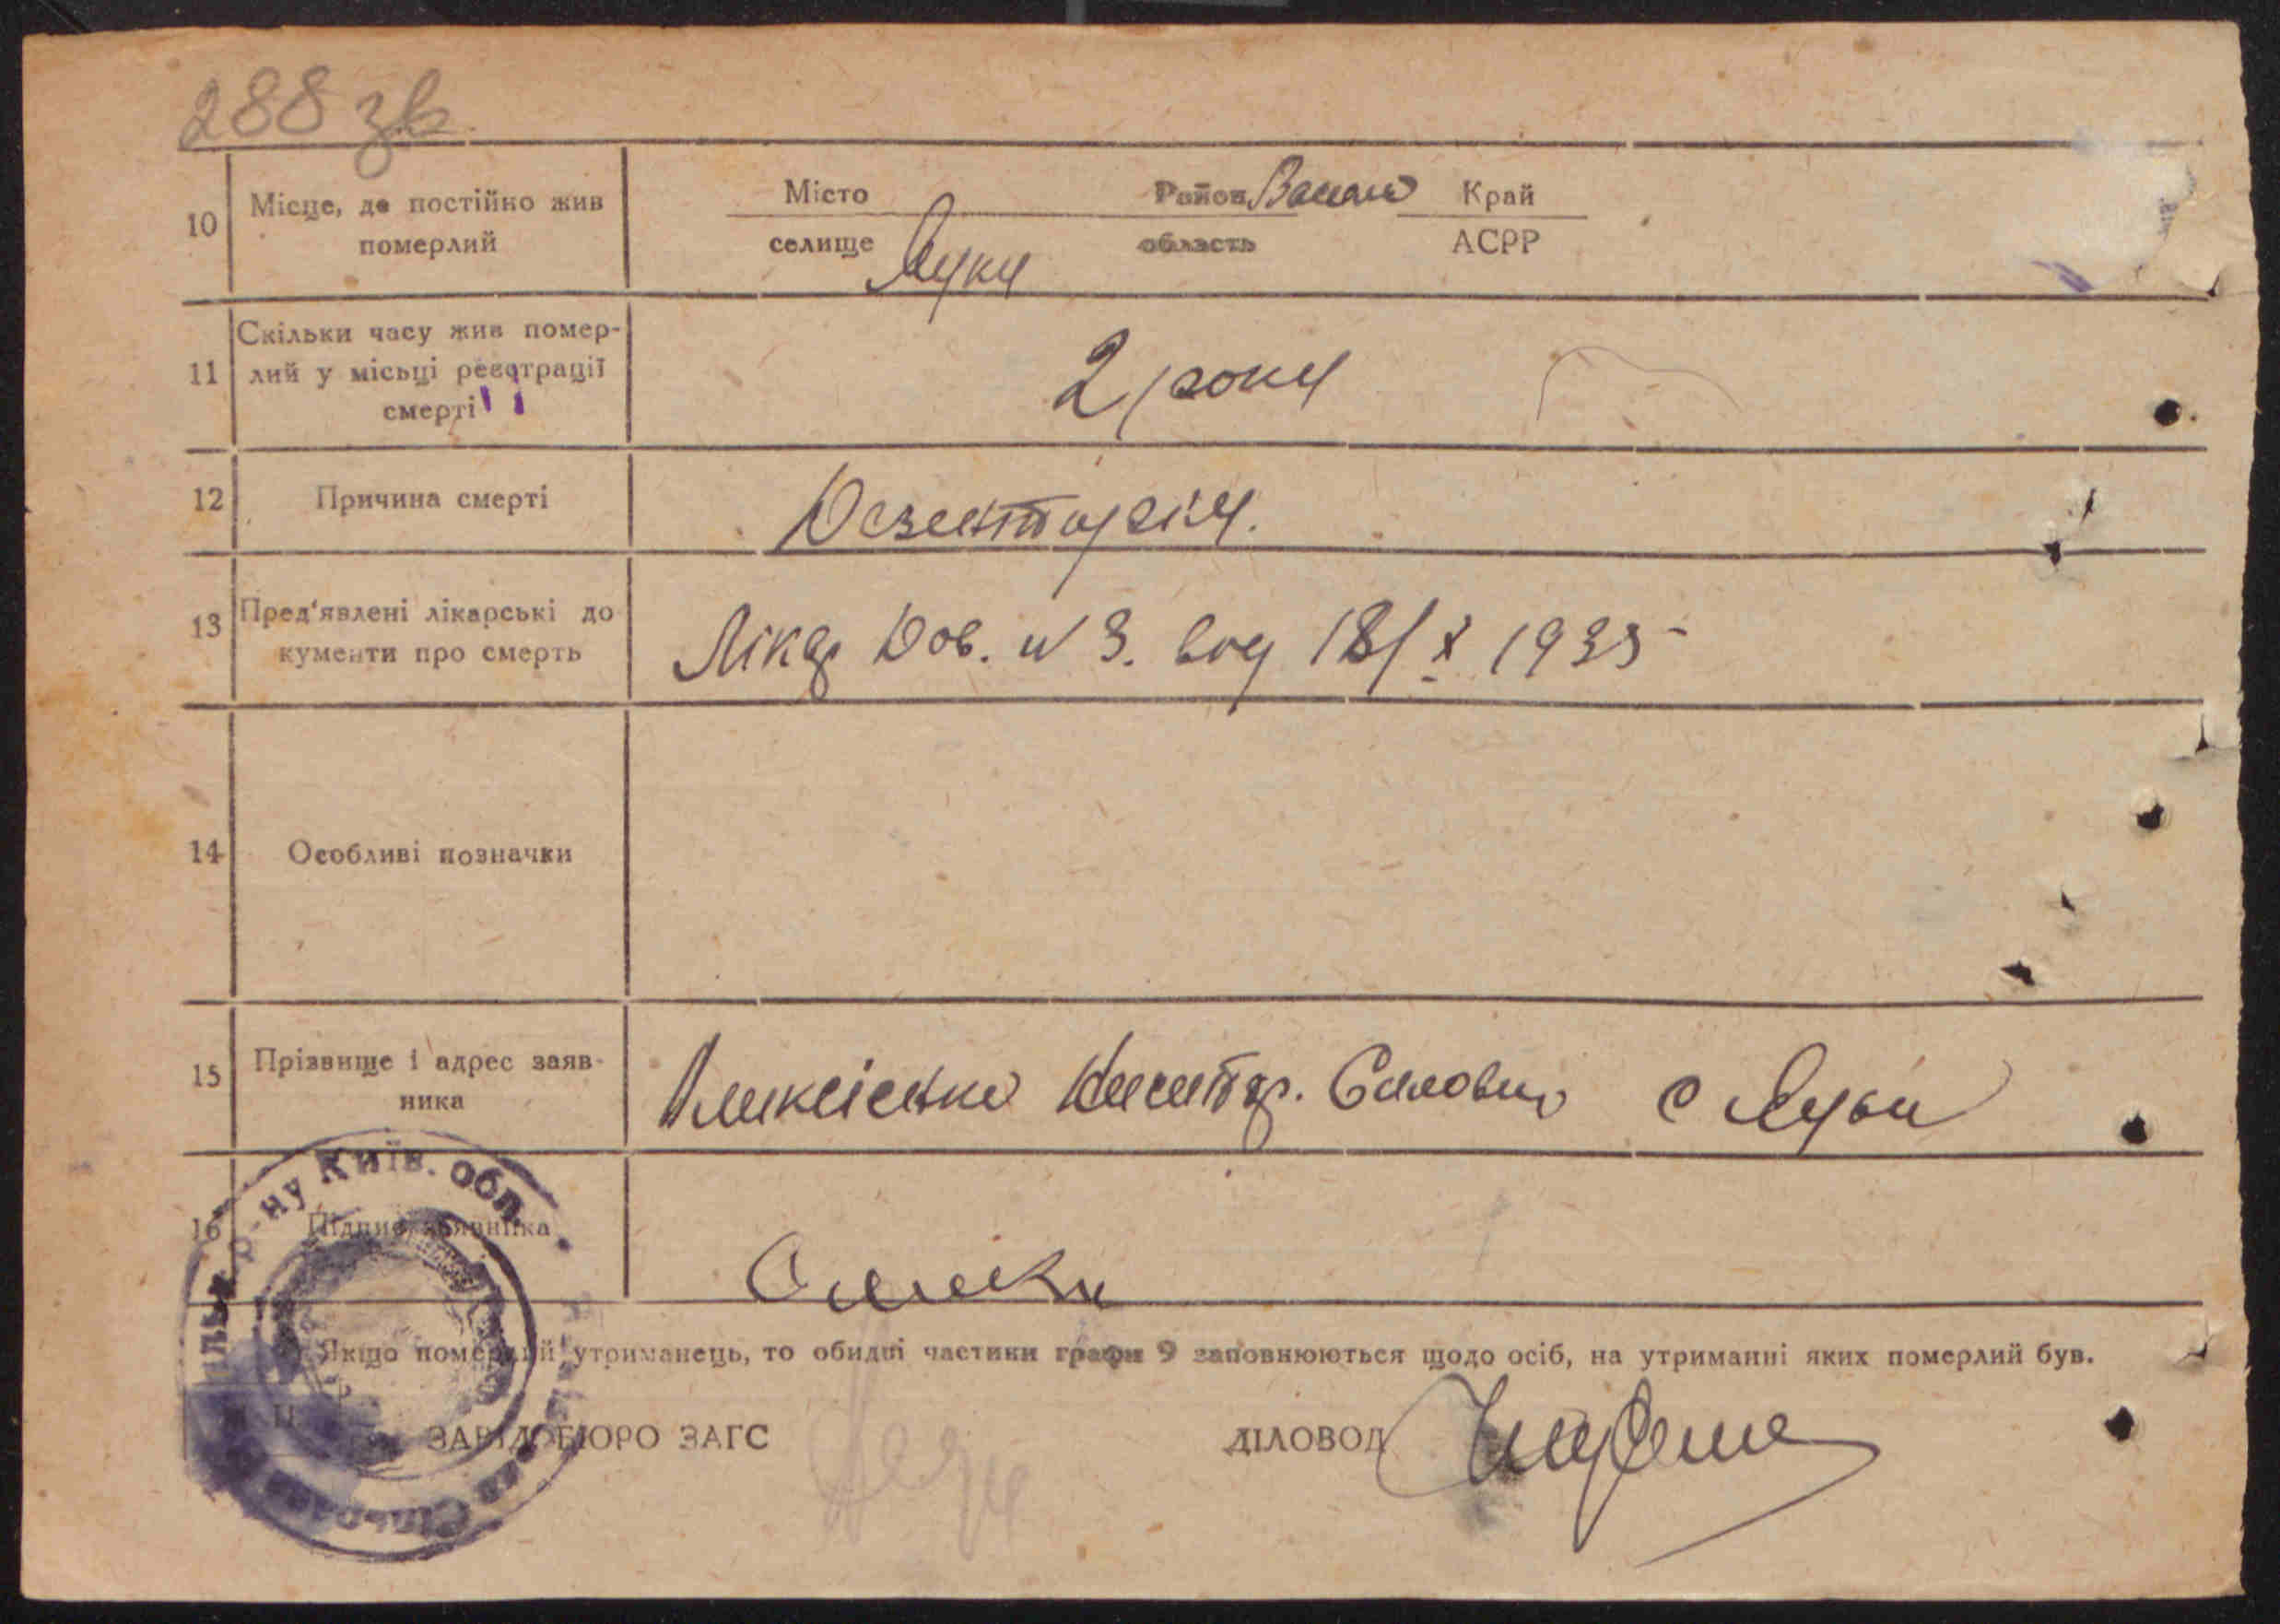 288 зв
10 Місце, де постійно жив померлий Місто селище Луки Район область Край АСРР
11 Скільки часу жив померлий у місьці реєстрації смерті 2 роки
12 Причина смерті Дезентирія.
13 Пред'явлені лікарські документи про смерть Лікар Дов. № 3. від 18/X 1935
14 Особливі позначки
15 Прізвище і адрес заявника с Луки
16 Підпис заявника
р-ну Київ. обл.
Якщо померлий утриманець, то обидві частини графи 9 заповнюються щодо осіб, на утриманні яких померлий був.
ЗАВІД БЮРО ЗАГС ДІЛОВОД